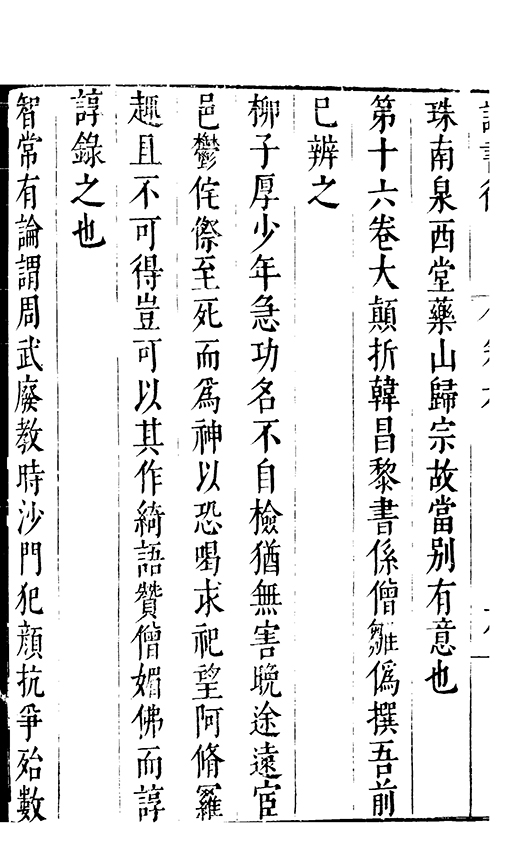 珠南泉西堂藥山歸宗故當別有意也
第十六卷大顛折韓昌黎書係僧雛僞撰吾前
已辨之
柳子厚少年急功名不自檢猶無害晚途遠宦
邑鬱侘傺至死而爲神以恐喝求祀望阿脩羅
趣且不可得豈可以其作綺語贊僧媚佛而諄
諄錄之也
智常有論謂周武廢教時沙門犯顏抗爭殆數